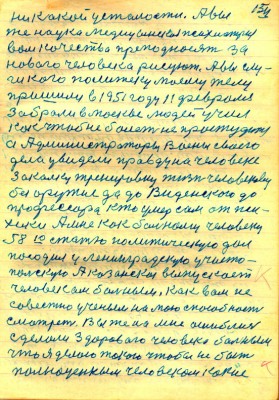 154
никакой усталости. А вы
же наука медицинская психиатри
вам качества преподносят за
нового человека рисуют. А вы слу
гикого политеку моему телу
пришили в 1951 году 11 февраля
Забрали в москве людей учил
как чтоб не болеть не простудиту
а Администраторы Воены своего
дела увидели правду на человеке
Закалку тренировку тизн человекову
бы оружил да до Виденского до
профессора кто умер сам от пси
хики А мне как больному человеку
58 ю статю политическую дали
посадили у Ленинградскую у чисто
польскую А казанская выпускает
человеком больным. Как вам не
совестно ученым на мою способность
смотреть. Вы же на мне ошиблись
сделали Здорового человека больным
что я делаю такого чтобы не быть
полноценным человеком какие